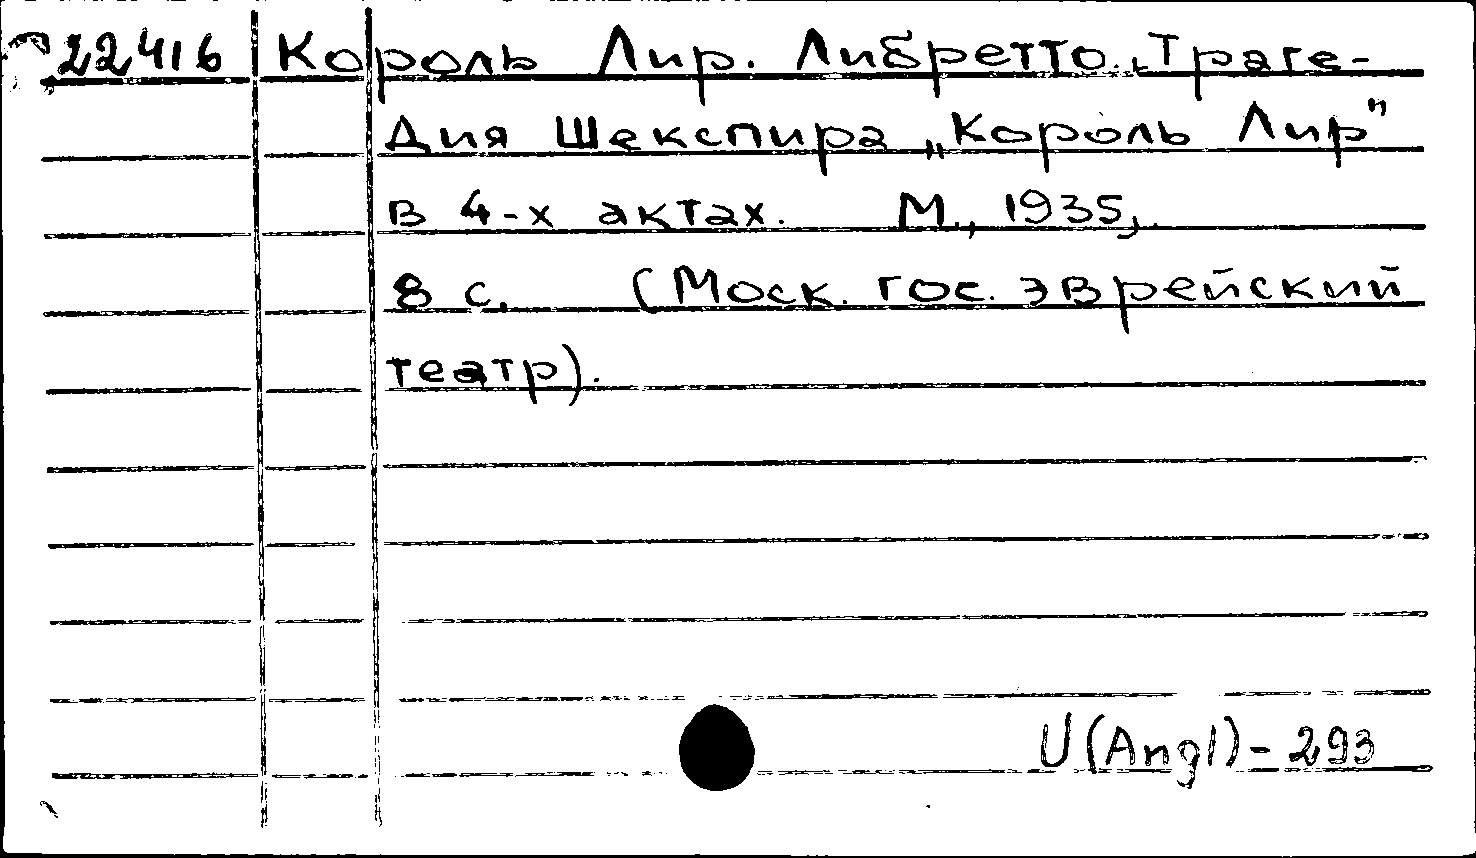 22416 Король Лир. Либретто. „Траге-
дия Шекспира „Король Лир"
в 4-х актах. М., 1935,
8 с. (Моск. гос. эврейский
театр).
U(Angl)-293